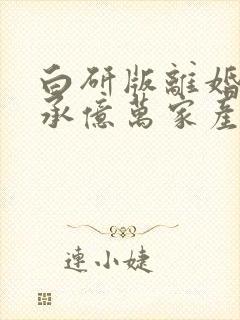 白研版離婚
承億萬家產
連小婕